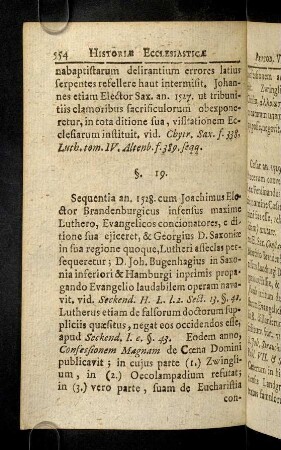 554 HISTORIÆ ECCLESIASTICÆ
nabaptistarum delirantium errores latius
serpentes refellere haut intermisit. Johan-
nes etiam Elector Sax. an. 1527. ut tribuni-
tiis clamoribus sacrificulorum obexpone-
retur, in tota ditione sua, visitationem Ec-
clesiarum instituit. vid. Chytr. Sax. f. 338.
Luth. tom. IV. Altenb. f. 389. seqq.
§. 19.
Sequentia an. 1528. cum Joachimus Ele-
ctor Brandenburgicus infensus maxime
Luthero, Evangelicos concionatores, e di-
tione sua ejiceret, & Georgius D. Saxoniæ
in sua regione quoque, Lutheri asseclas per-
sequeretur; D. Joh. Bugenhagius in Sa-
xonia inferiori & Hamburgi inprimis propa-
gando Evangelio laudabilem operam nava-
vit. vid. Seckend. H. L. l. 2. Sect. 13. §. 42.
Lutherus etiam de falsorum doctorum sup-
pliciis quæsitus, negat eos occidendos esse,
apud Seckend. l. c. §. 43. Eodem anno,
Confessionem Magnam de Cœna Domini
publicavit; in cujus parte (1.) Zwingli-
um, in (2.) Oecolampadium refutat;
in (3.) vero parte, suam de Eucharistia
con-